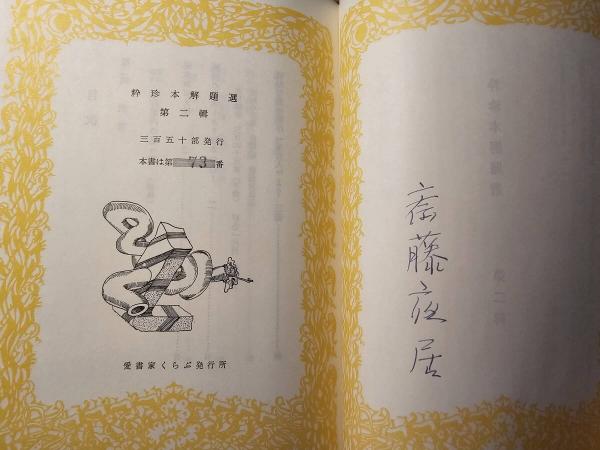 粋珍本解題選
第二輯
三百五十部発行
本書は第 73 番
愛書家くらぶ発行所
斎藤夜居